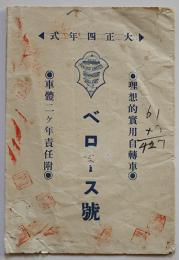 大正四年式
●理想的實用自轉車●
ベロース號
●車體二ヶ年責任附●
61
+7
427